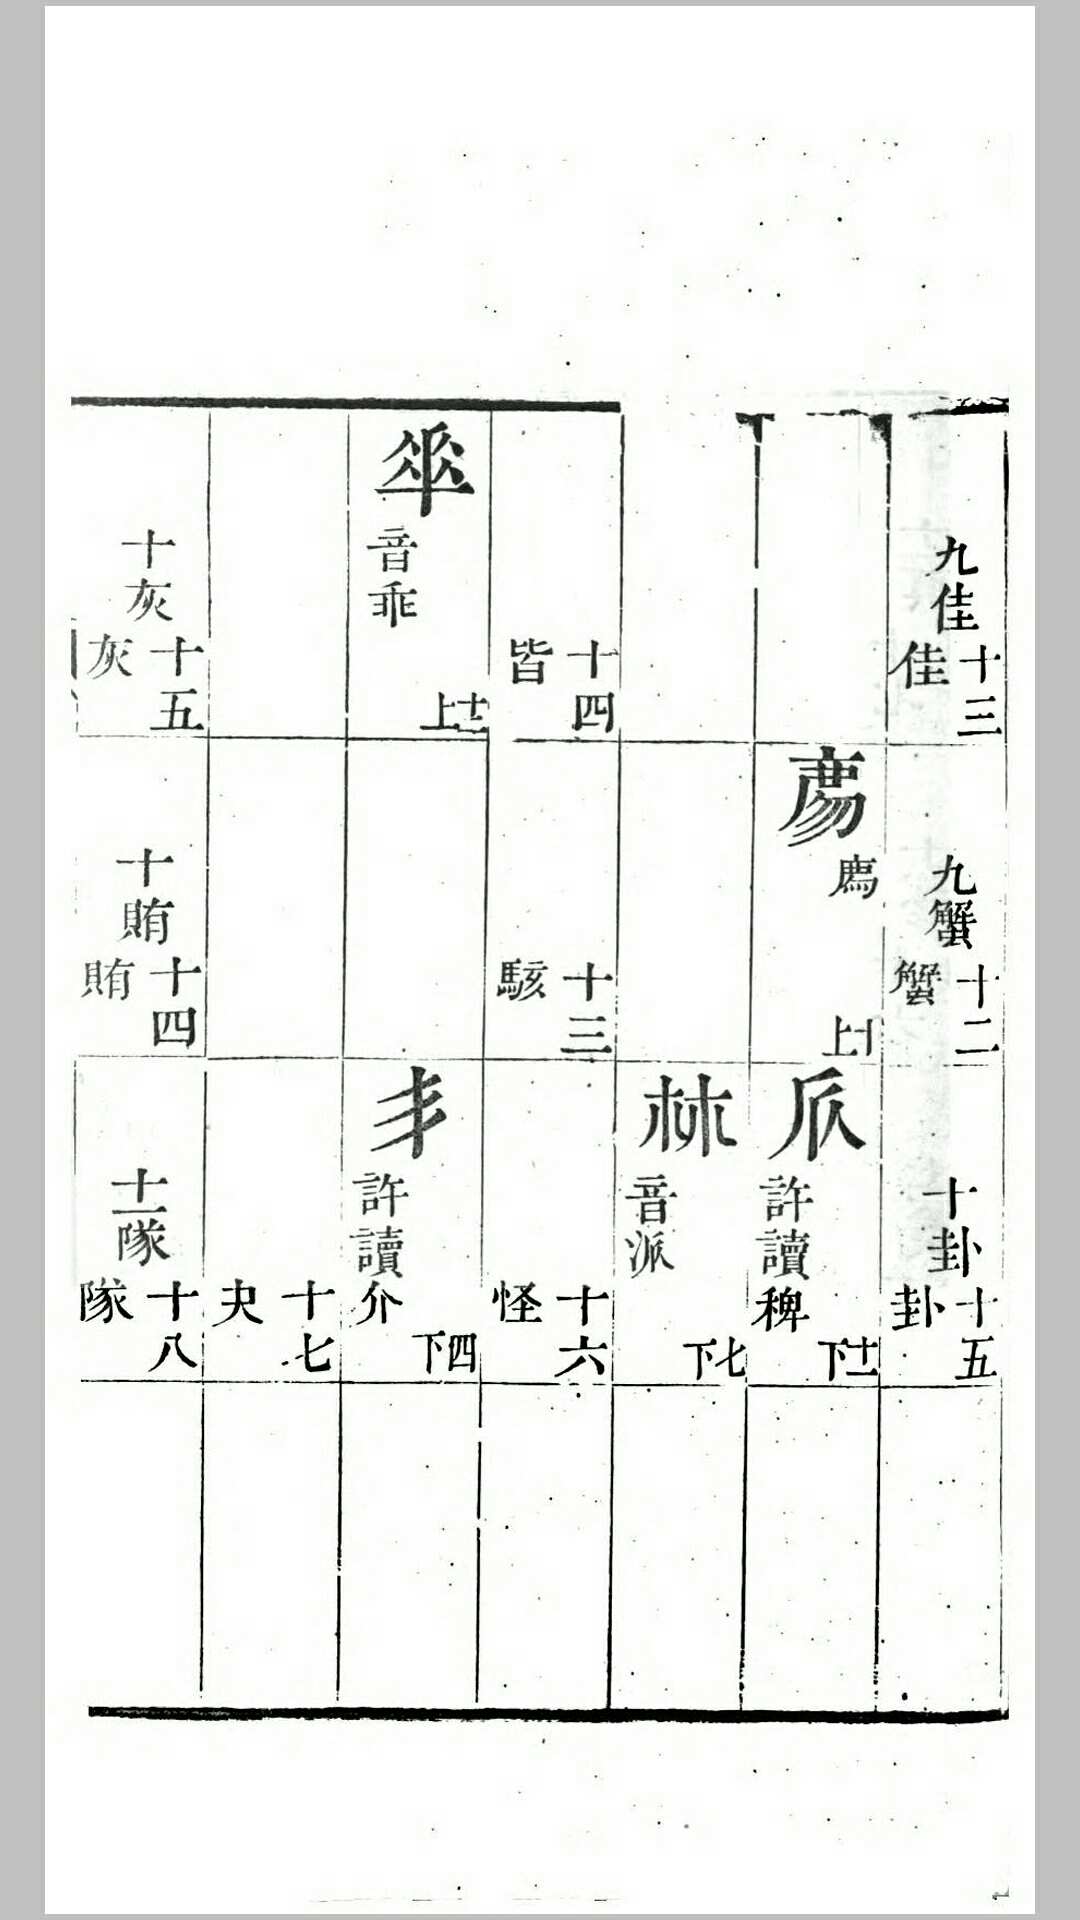 九佳
十三
佳
九蟹
十二
蟹
十卦
十五
卦
廌
廌
十上
𠂢
許讀稗
十一下
𣏟
音派
七下
十四
皆
十三
駭
十六
怪
音乖
十二上
丯
許讀介
四下
十七
夬
十灰
十五
灰
十賄
十四
賄
十一隊
十八
隊